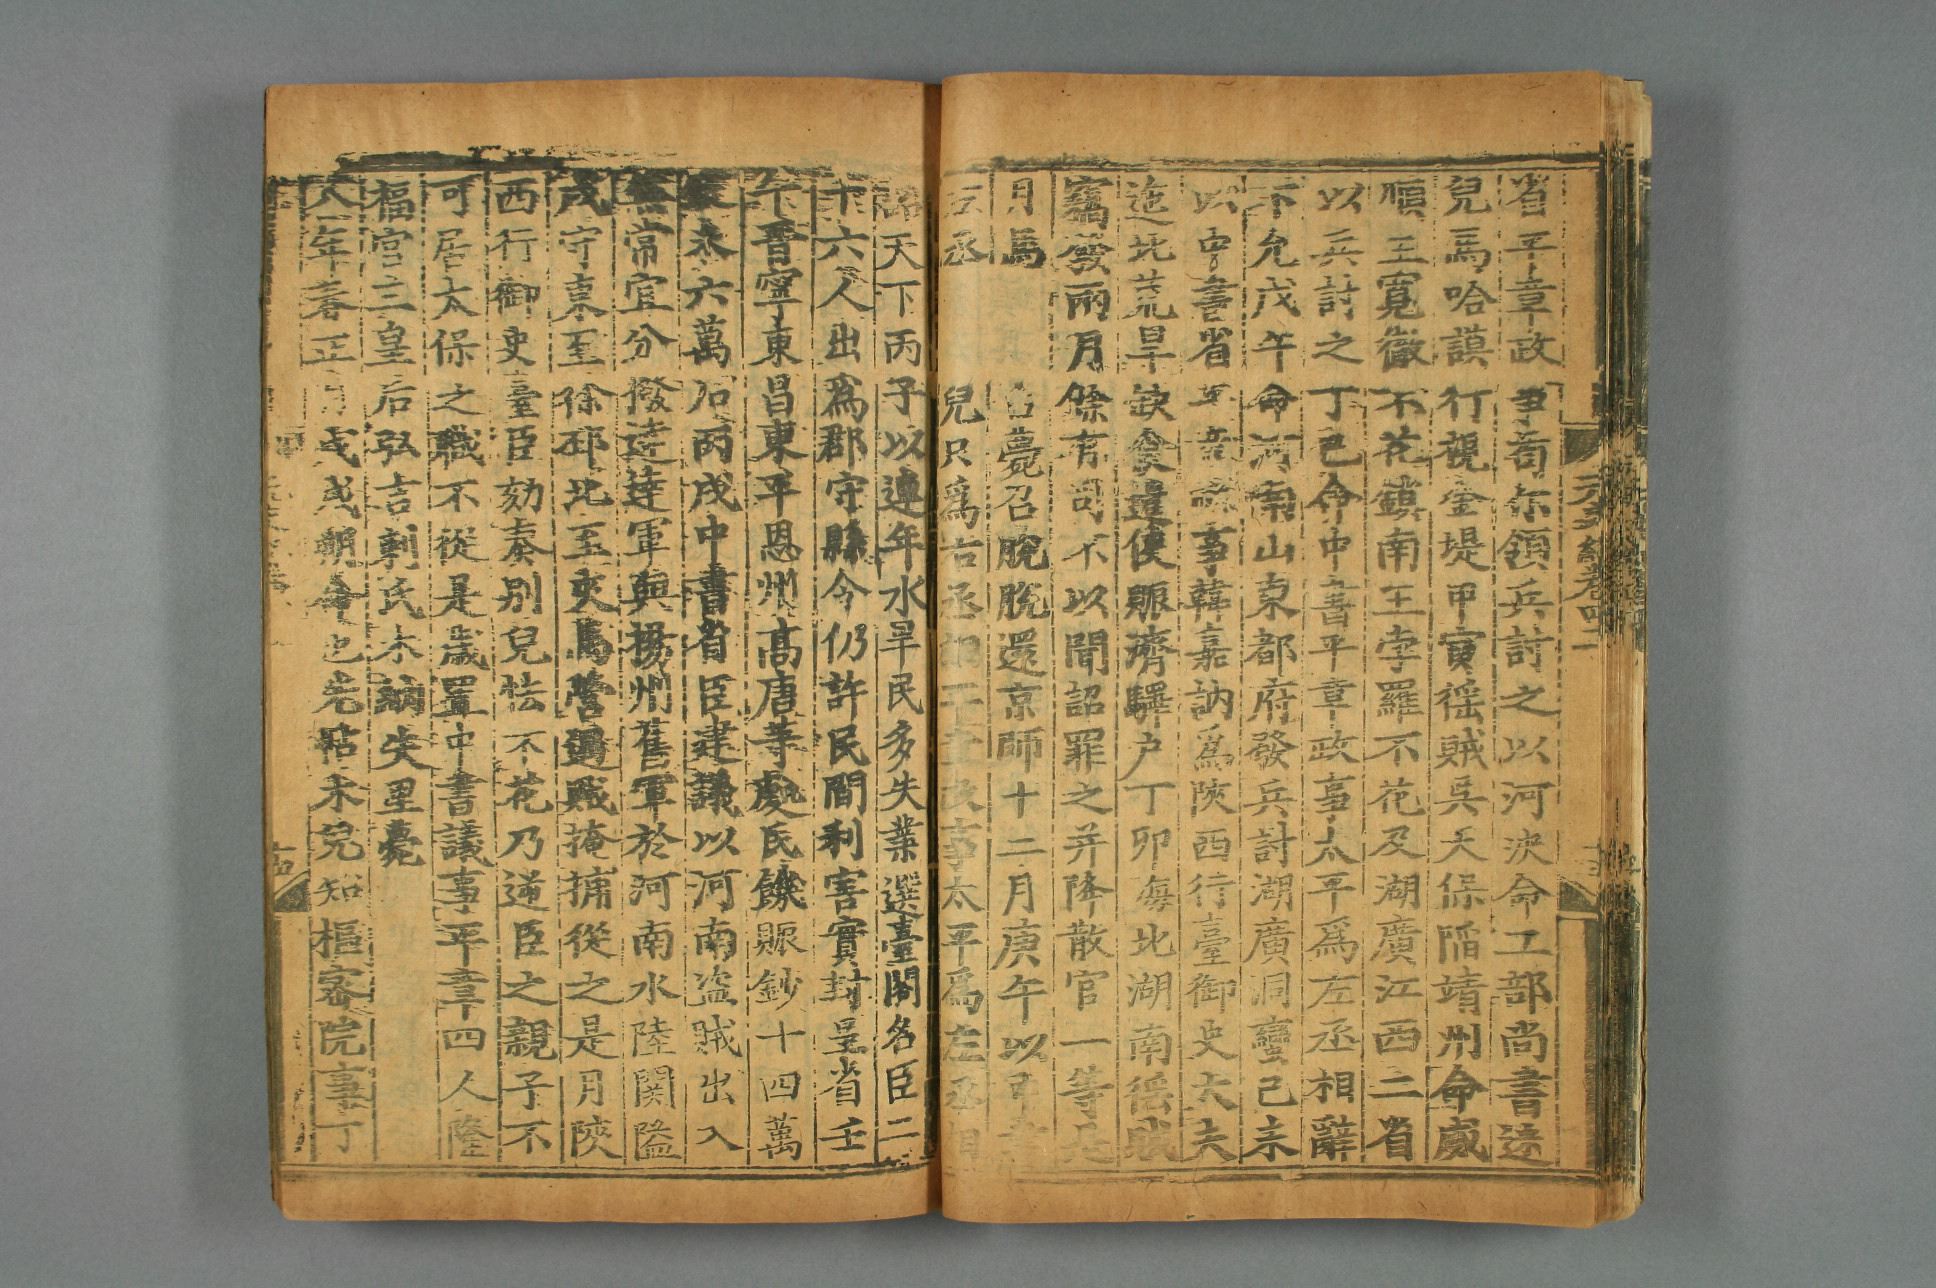 省平章政事苟尔領兵討之以河决命工部尚書迷
兒馬哈謨行視金堤甲寅徭賊吳天保陷靖州命威
順王寬徹不花鎮南王孛羅不花及湖廣江西二省
以兵討之丁巳命中書平章政事太平爲左丞相辭
不允戊午命河南山東都府發兵討湖廣洞蠻己未
以中書省 事韓嘉訥爲陜西行臺御史大夫
迤北荒旱缺食遣使賑濟驛户丁卯海北湖南徭賊
竊發兩月餘有司不以聞詔罪之并降散官一等是
月馬 薨召脫脫還京師十二月庚午以
右丞 兒只爲右丞相平章政事太平爲左丞相
詔天下丙子以連年水旱民多失業選臺閣名臣二
十六人出爲郡守縣令仍許民間利害實封呈省壬
午晉寧東昌東平恩州高唐等處民饑賑鈔十四萬
錠米六萬石丙戌中書省臣建議以河南盜賊出入
無常宜分撥達達軍與揚州舊軍於河南水陸関隘
戍守東至徐邳北至夾馬營遇賊掩捕從之是月陜
西行御史臺臣劾奏别兒怯不花乃逆臣之親子不
可居太保之職不從是歲置中書議事平章四人隆
福宫三皇后弘吉剌氏木納失里薨
八年春正月戊戌朔命也先帖木兒知樞密院事丁
元史紀卷四一
十五